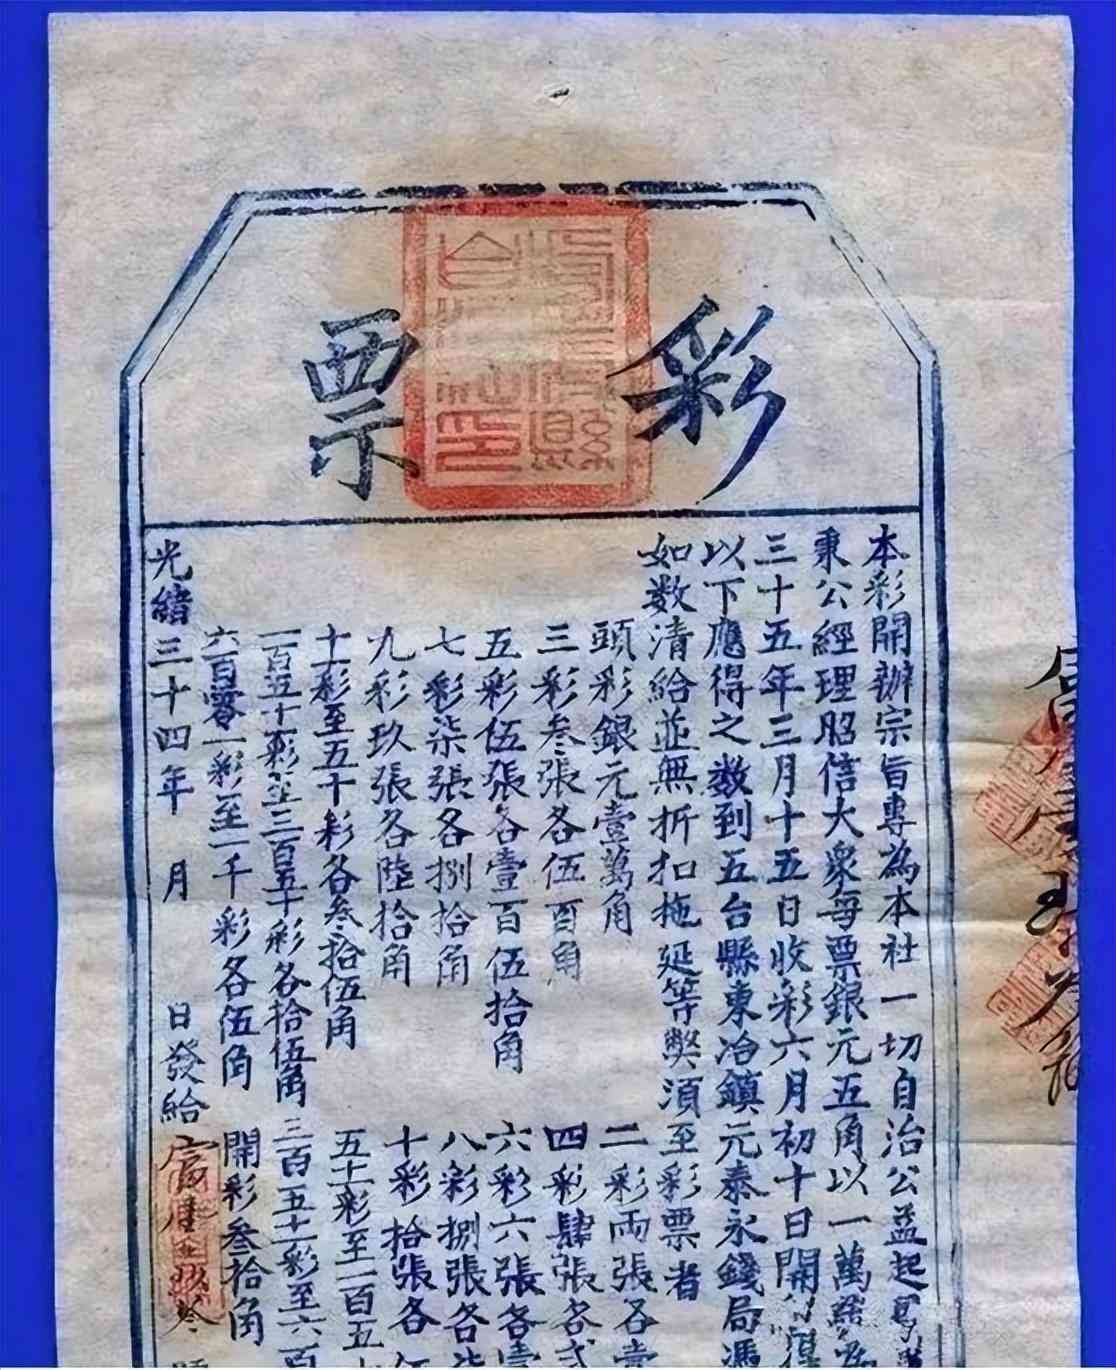 彩票
本彩開辦宗旨專為本社一切自治公益起見
秉公經理昭信大衆每票銀元五角以一萬
三十五年三月十五日收彩六月初十日開
以下應得之数到五台縣東冶鎮元泰永錢局憑
如数清給並無折扣拖延等弊須至彩票者
頭彩銀元壹萬角
二彩両張各壹
三彩叁張各伍百角
四彩肆張各弍
五彩伍張各壹百伍拾角
六彩六張各壹
七彩柒張各捌拾角
八彩捌張各柒
九彩玖張各陸拾角
十彩拾張各
十一彩至五十彩各叁拾伍角
五十一彩至一百五
一百五十一彩至三百五十彩各拾伍角
三百五十一彩至六百
六百零一彩至一千彩各伍角
開彩叁拾角
光緒三十四年 月 日發給